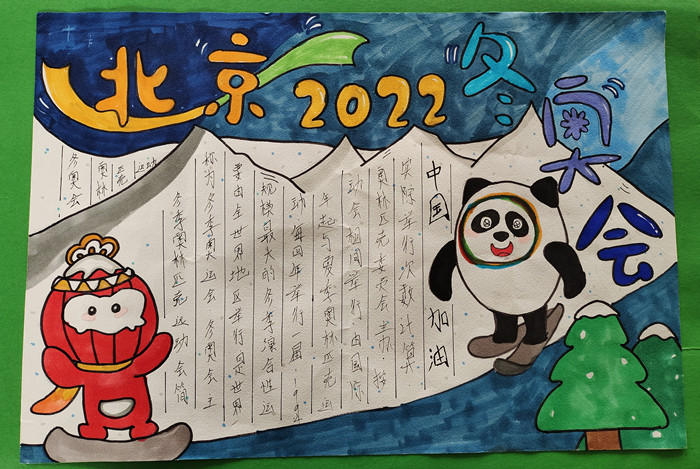 北京2022冬奥会
冬奥会
奥林
匹克
运动
冬季奥林匹克运动会简
称为冬季奥运会 冬奥会主
要由全世界地区举行是世界
规模最大的冬季综合性运
动 每四年举行一届 1994
年起与夏季奥林匹克运
动会相间举行 由国际
奥林匹克委员会主办 按
实际举行次数计算
中国 加油